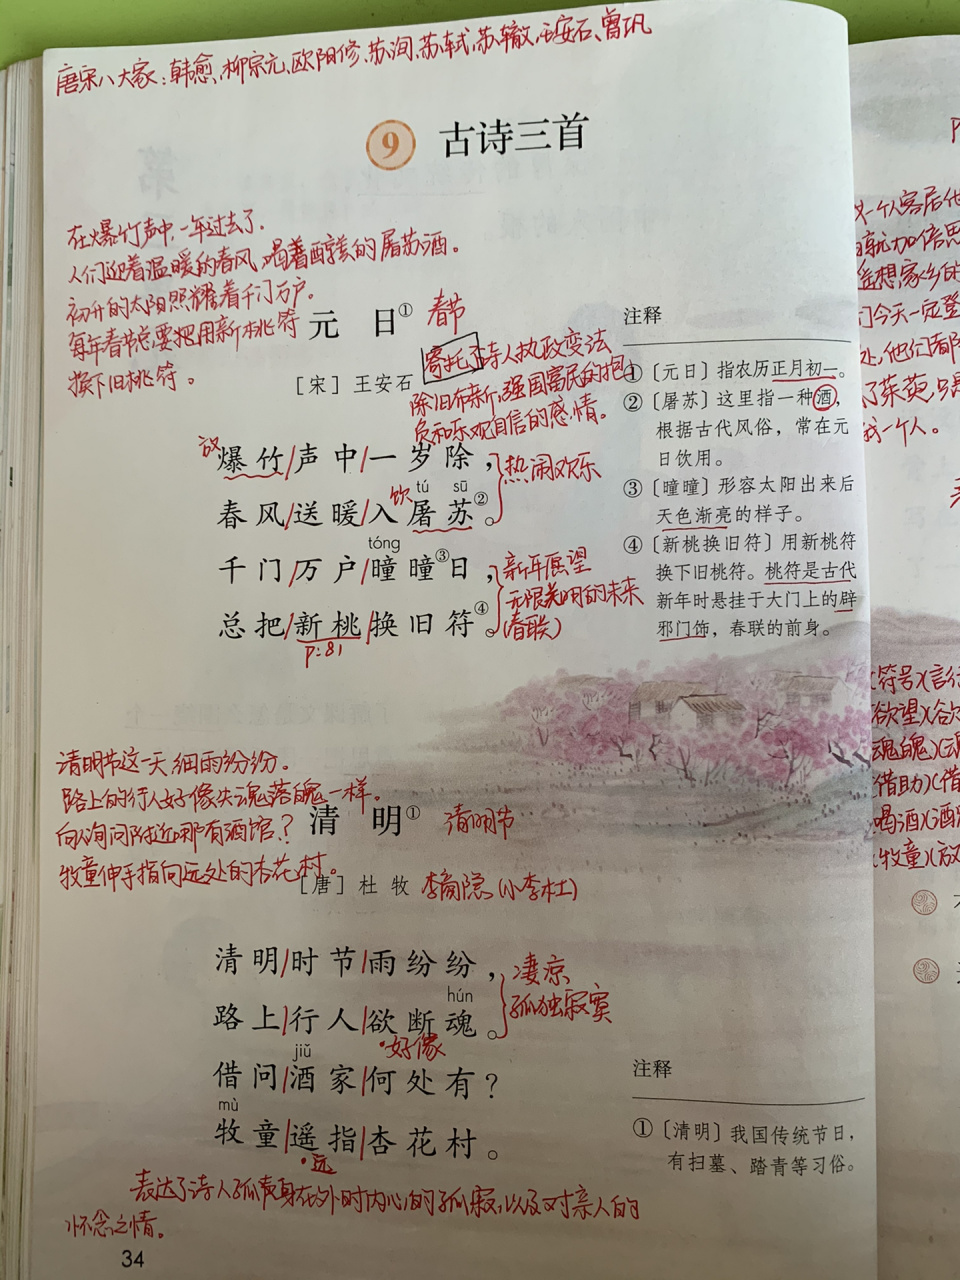 唐宋八大家：韩愈、柳宗元、欧阳修、苏洵、苏轼、苏辙、王安石、曾巩
9 古诗三首
在爆竹声中,一年过去了.
人们迎着温暖的春风,喝着醇美的屠苏酒。
初升的太阳照耀着千门万户。
每年春节总要把用新桃符
换下旧桃符。
元 日① 春节
[宋] 王安石
寄托了诗人执政变法
除旧布新,强国富民的抱
负和乐观自信的感情。
放
爆竹/声中/一岁除，
热闹欢乐
饮 tú sū
春风/送暖/入屠苏②。
tóng
千门/万户/曈曈③日，
新年展望
无限光明的未来
总把/新桃/换旧符④。
(春联)
P:81
注释
①〔元日〕指农历正月初一。
②〔屠苏〕这里指一种酒，
根据古代风俗，常在元
日饮用。
③〔曈曈〕形容太阳出来后
天色渐亮的样子。
④〔新桃换旧符〕用新桃符
换下旧桃符。桃符是古代
新年时悬挂于大门上的辟
邪门饰，春联的前身。
清明节这一天细雨纷纷。
路上的行人好像失魂落魄一样。
向人询问附近哪有酒馆？
牧童伸手指向远处的杏花村。
清 明① 清明节
[唐] 杜 牧 李商隐(小李杜)
清明/时节/雨纷纷，
凄凉
孤独寂寞
hún
路上/行人/欲断魂。
·好像
jiǔ
借问/酒家/何处有？
mù
牧童/遥指/杏花村。
·远
表达了诗人孤身在外时内心的孤寂,以及对亲人的
怀念之情。
注释
①〔清明〕我国传统节日，
有扫墓、踏青等习俗。
34
一个人客居他
就加倍思
遥想家乡的
们今天一定登
处,他们都
了茱萸,只
我一个人。
(符号)(言行
(欲望)(
(借助)(借
喝酒)(酒
牧童)(放